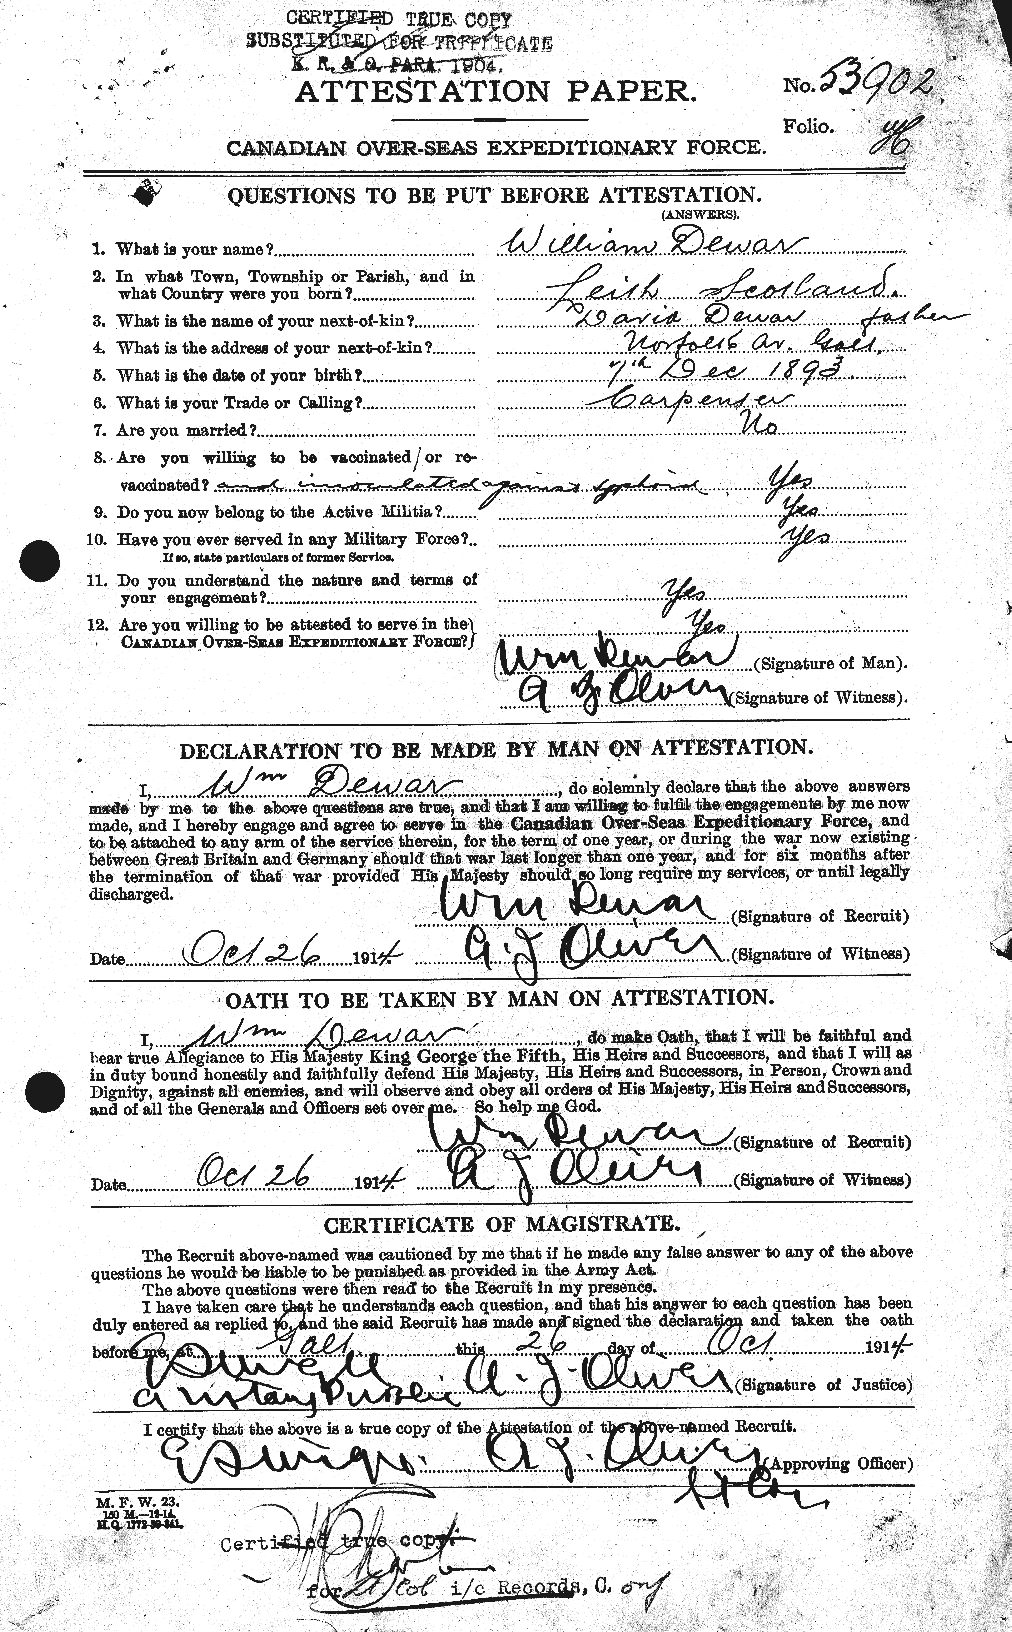 CERTIFIED TRUE COPY
SUBSTITUTED FOR TRIPLICATE
K. R. & O. PARA. 1904.
ATTESTATION PAPER.
No. 53902
Folio.
CANADIAN OVER-SEAS EXPEDITIONARY FORCE.
QUESTIONS TO BE PUT BEFORE ATTESTATION.
(ANSWERS).
1. What is your name? William Dewar
2. In what Town, Township or Parish, and in
what Country were you born? Leith Scotland.
3. What is the name of your next-of-kin? David Dewar father
4. What is the address of your next-of-kin? Norfolk Av. Galt.
5. What is the date of your birth? 7th Dec 1893.
6. What is your Trade or Calling? Carpenter
7. Are you married? No
8. Are you willing to be vaccinated or re-
vaccinated? and innoculated against typhoid Yes
9. Do you now belong to the Active Militia? Yes
10. Have you ever served in any Military Force? Yes
If so, state particulars of former Service.
11. Do you understand the nature and terms of
your engagement? Yes
12. Are you willing to be attested to serve in the
CANADIAN OVER-SEAS EXPEDITIONARY FORCE? Yes
Wm Dewar (Signature of Man).
A J Oliver (Signature of Witness).
DECLARATION TO BE MADE BY MAN ON ATTESTATION.
I, Wm Dewar, do solemnly declare that the above answers
made by me to the above questions are true, and that I am willing to fulfil the engagements by me now
made, and I hereby engage and agree to serve in the Canadian Over-Seas Expeditionary Force, and
to be attached to any arm of the service therein, for the term of one year, or during the war now existing
between Great Britain and Germany should that war last longer than one year, and for six months after
the termination of that war provided His Majesty should so long require my services, or until legally
discharged.
Wm Dewar (Signature of Recruit)
Date Oct 26 1914 A. J Oliver (Signature of Witness)
OATH TO BE TAKEN BY MAN ON ATTESTATION.
I, Wm Dewar, do make Oath, that I will be faithful and
bear true Allegiance to His Majesty King George the Fifth, His Heirs and Successors, and that I will as
in duty bound honestly and faithfully defend His Majesty, His Heirs and Successors, in Person, Crown and
Dignity, against all enemies, and will observe and obey all orders of His Majesty, His Heirs and Successors,
and of all the Generals and Officers set over me. So help me God.
Wm Dewar (Signature of Recruit)
Date Oct 26 1914 A J Oliver (Signature of Witness)
CERTIFICATE OF MAGISTRATE.
The Recruit above-named was cautioned by me that if he made any false answer to any of the above
questions he would be liable to be punished as provided in the Army Act.
The above questions were then read to the Recruit in my presence.
I have taken care that he understands each question, and that his answer to each question has been
duly entered as replied to, and the said Recruit has made and signed the declaration and taken the oath
before me, at Galt this 26 day of Oct 1914
A. J. Oliver (Signature of Justice)
a notary Public
I certify that the above is a true copy of the Attestation of the above-named Recruit.
A J. Oliver (Approving Officer)
Lt Col
M. F. W. 23.
150 M.—12-14.
H.Q. 1772-39-841.
Certified true copy.
for Lt Col i/c Records, C.